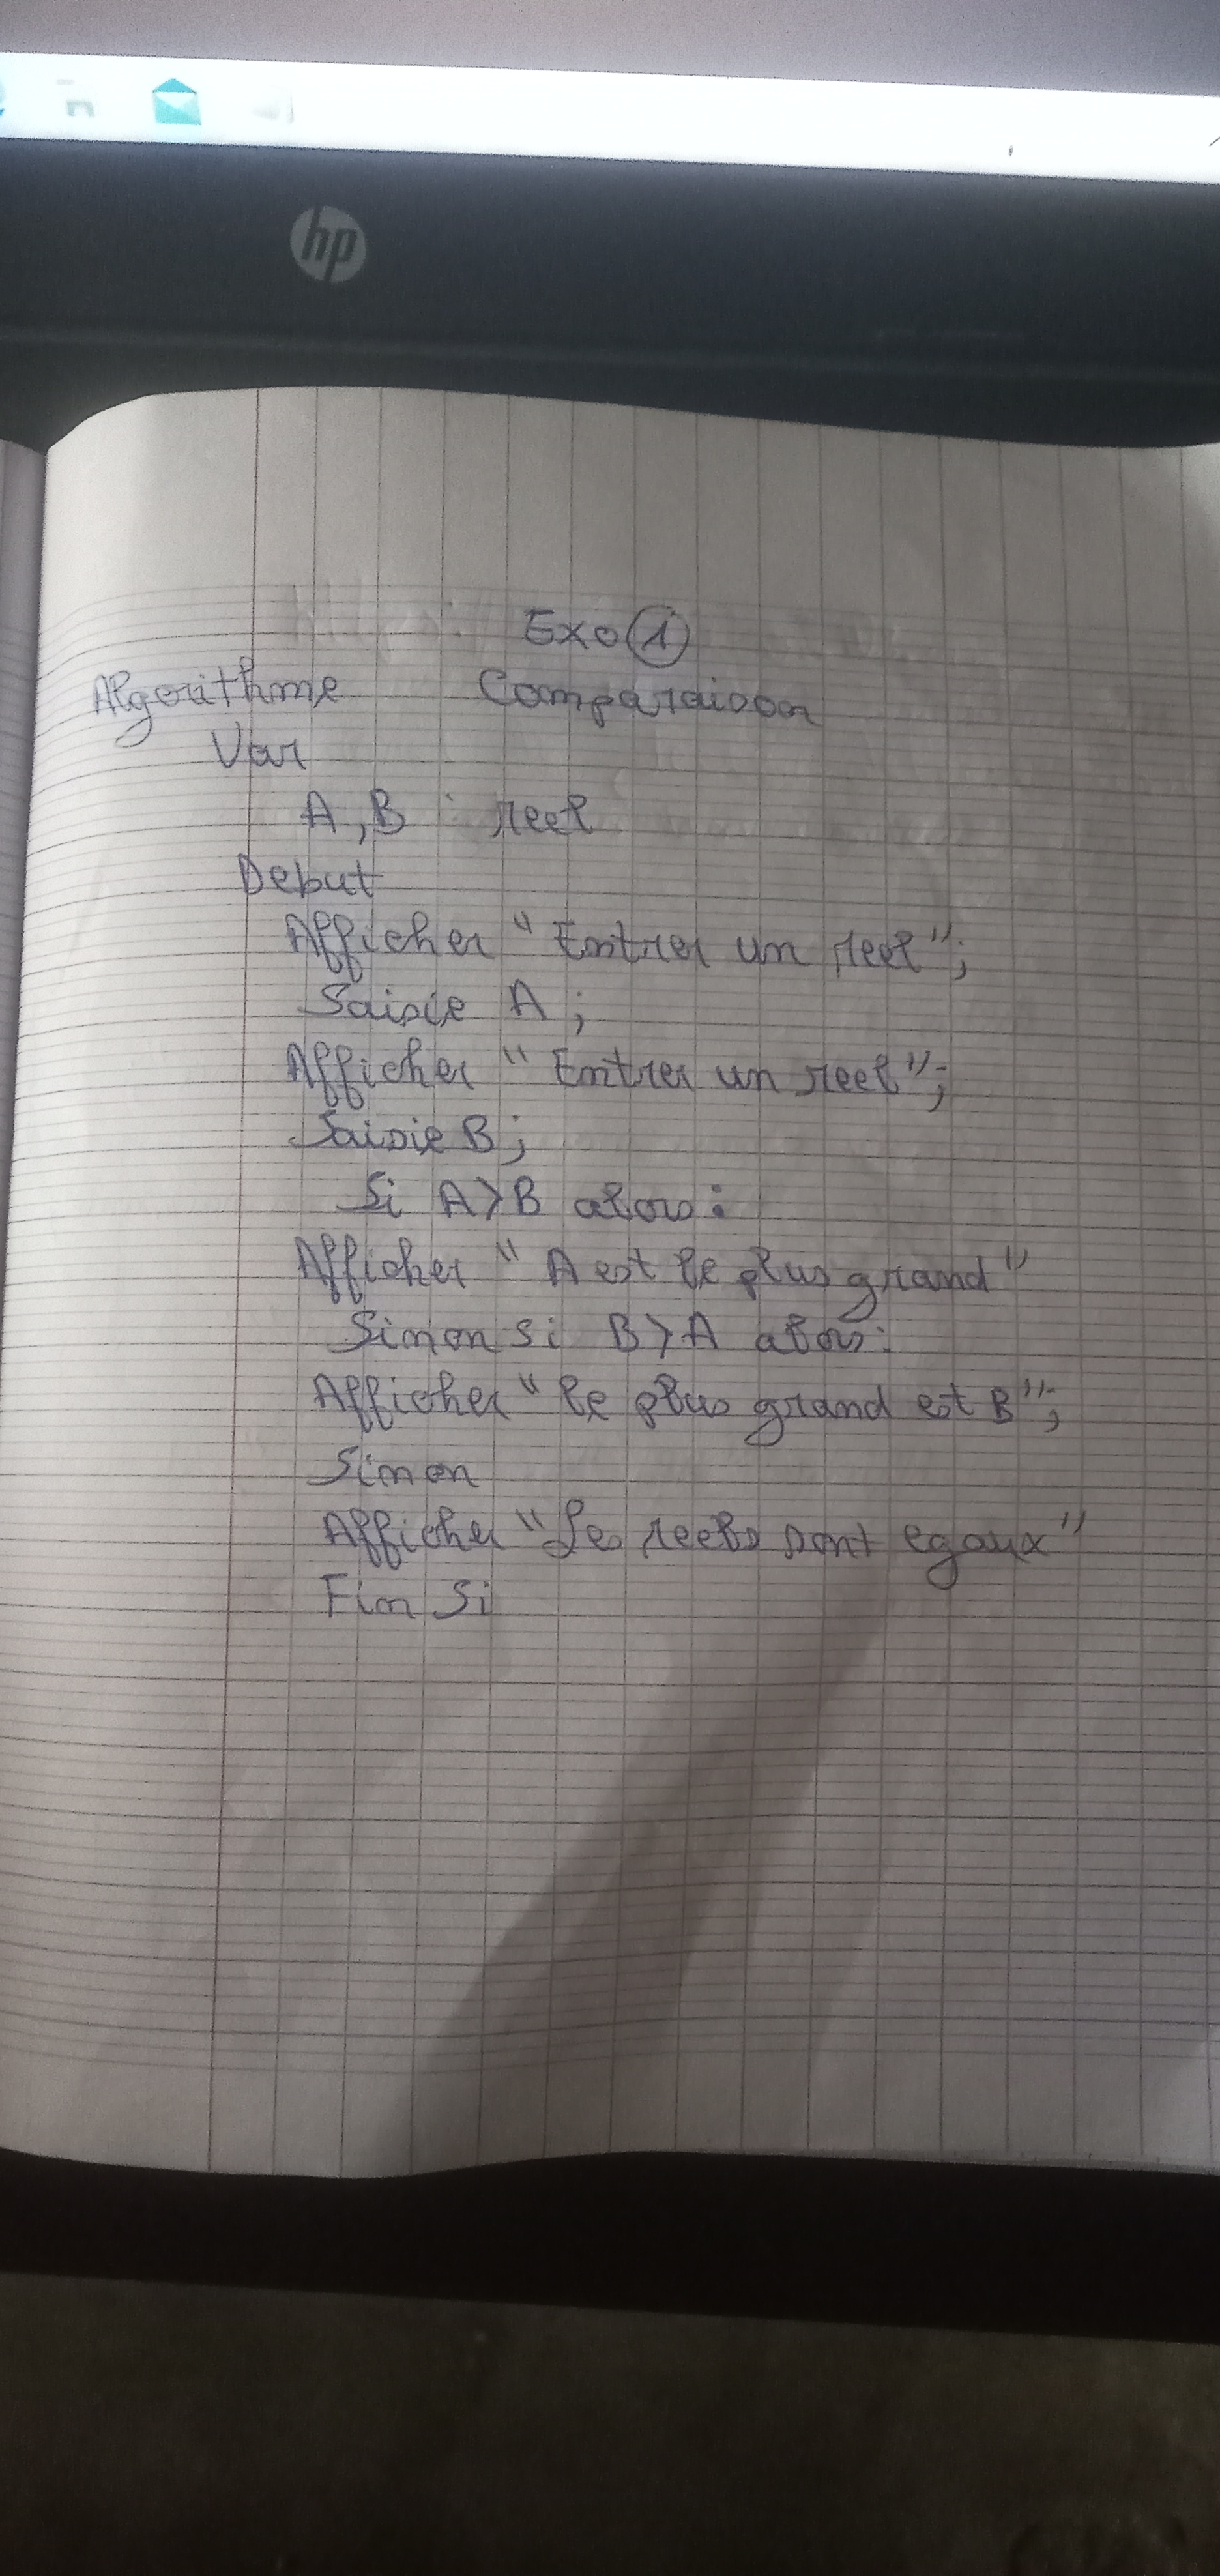 hp
Exo 1
Algorithme Comparaison
Var
A, B : reel
Debut
Afficher "Entrer un reel";
Saisie A ;
Afficher "Entrer un reel";
Saisie B ;
Si A>B alors :
Afficher "A est le plus grand"
Sinon si B>A alors :
Afficher "le plus grand est B";
Sinon
Afficher "Les reels sont egaux"
Fin Si